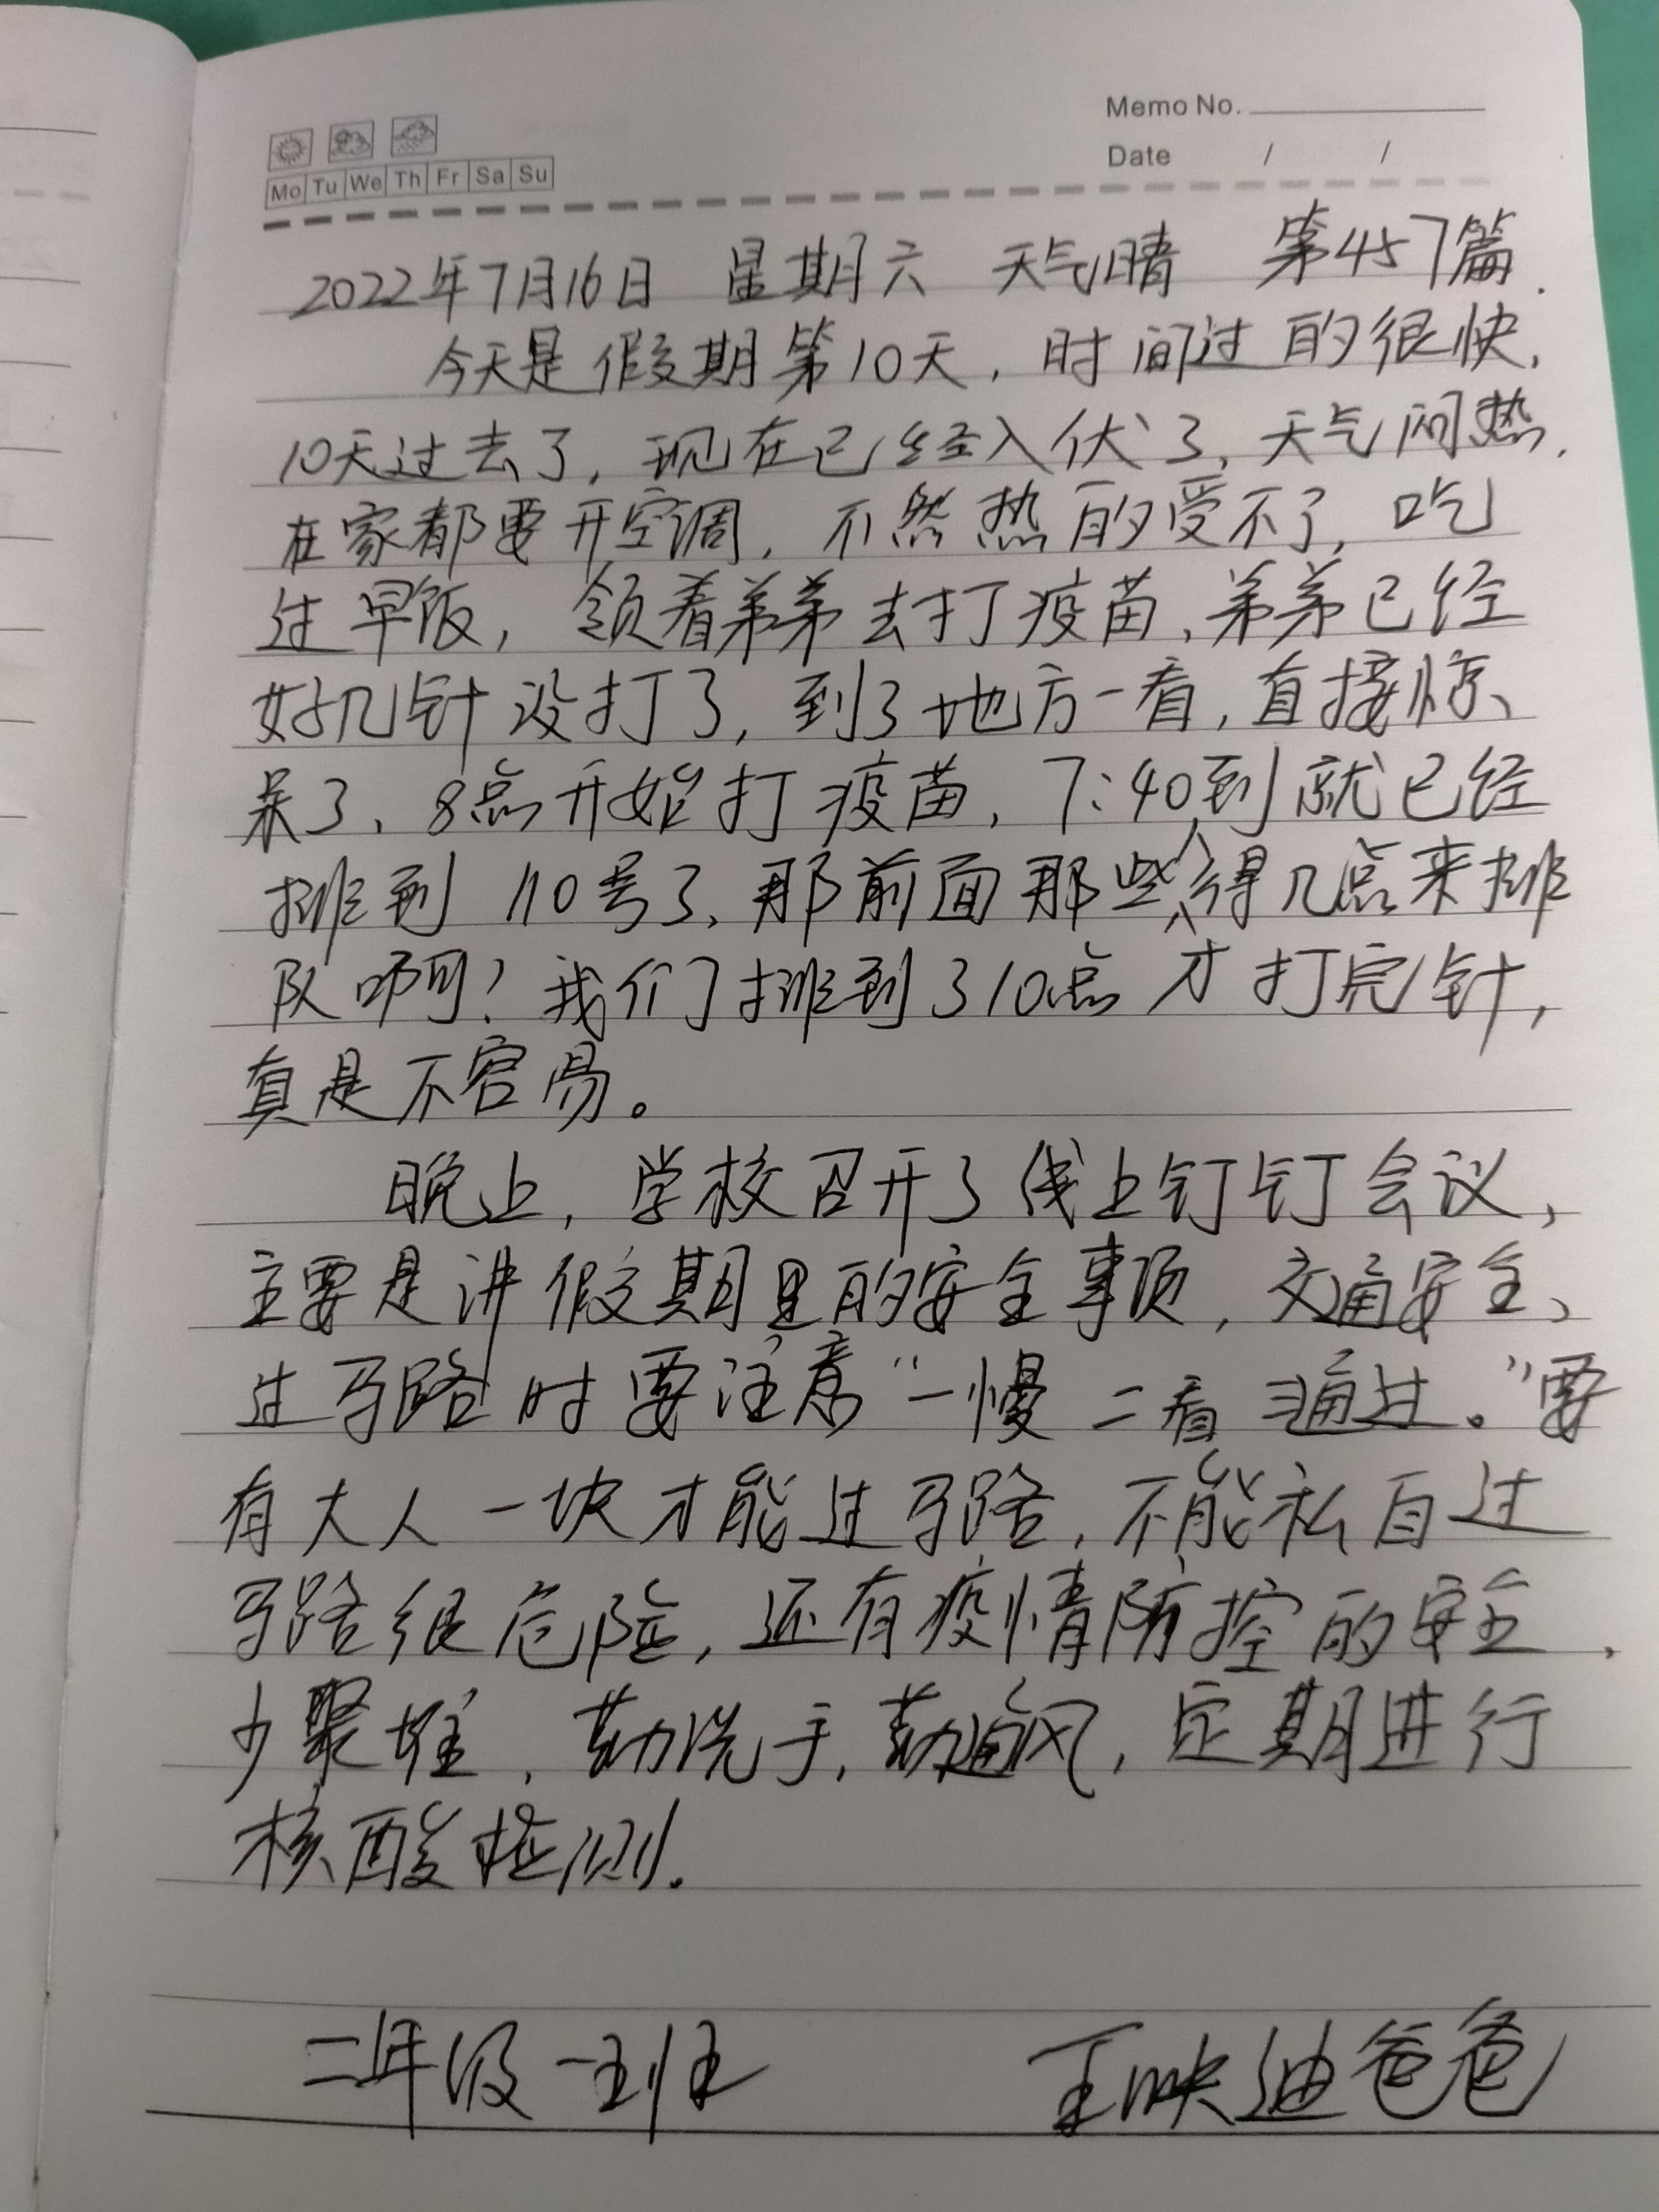 Memo No.
Date / /
Mo Tu We Th Fr Sa Su
2022年7月16日 星期六 天气晴 第457篇.
今天是假期第10天,时间过的很快,
10天过去了,现在已经入伏了,天气闷热,
在家都要开空调,不然热的受不了,吃
过早饭,领着弟弟去打疫苗,弟弟已经
好几针没打了,到了地方一看,直接惊
呆了,8点开始打疫苗,7:40到就已经
排到110号了,那前面那些人得几点来排
队啊?我们排到310点才打完针,
真是不容易。
晚上,学校召开了线上钉钉会议,
主要是讲假期里的安全事项,交通安全、
过马路时要注意“一慢二看三通过。”要
有大人一块才能过马路,不能私自过
马路很危险,还有疫情防控的安全,
少聚堆,勤洗手,勤通风,定期进行
核酸检测.
二年级一班 王映迪爸爸